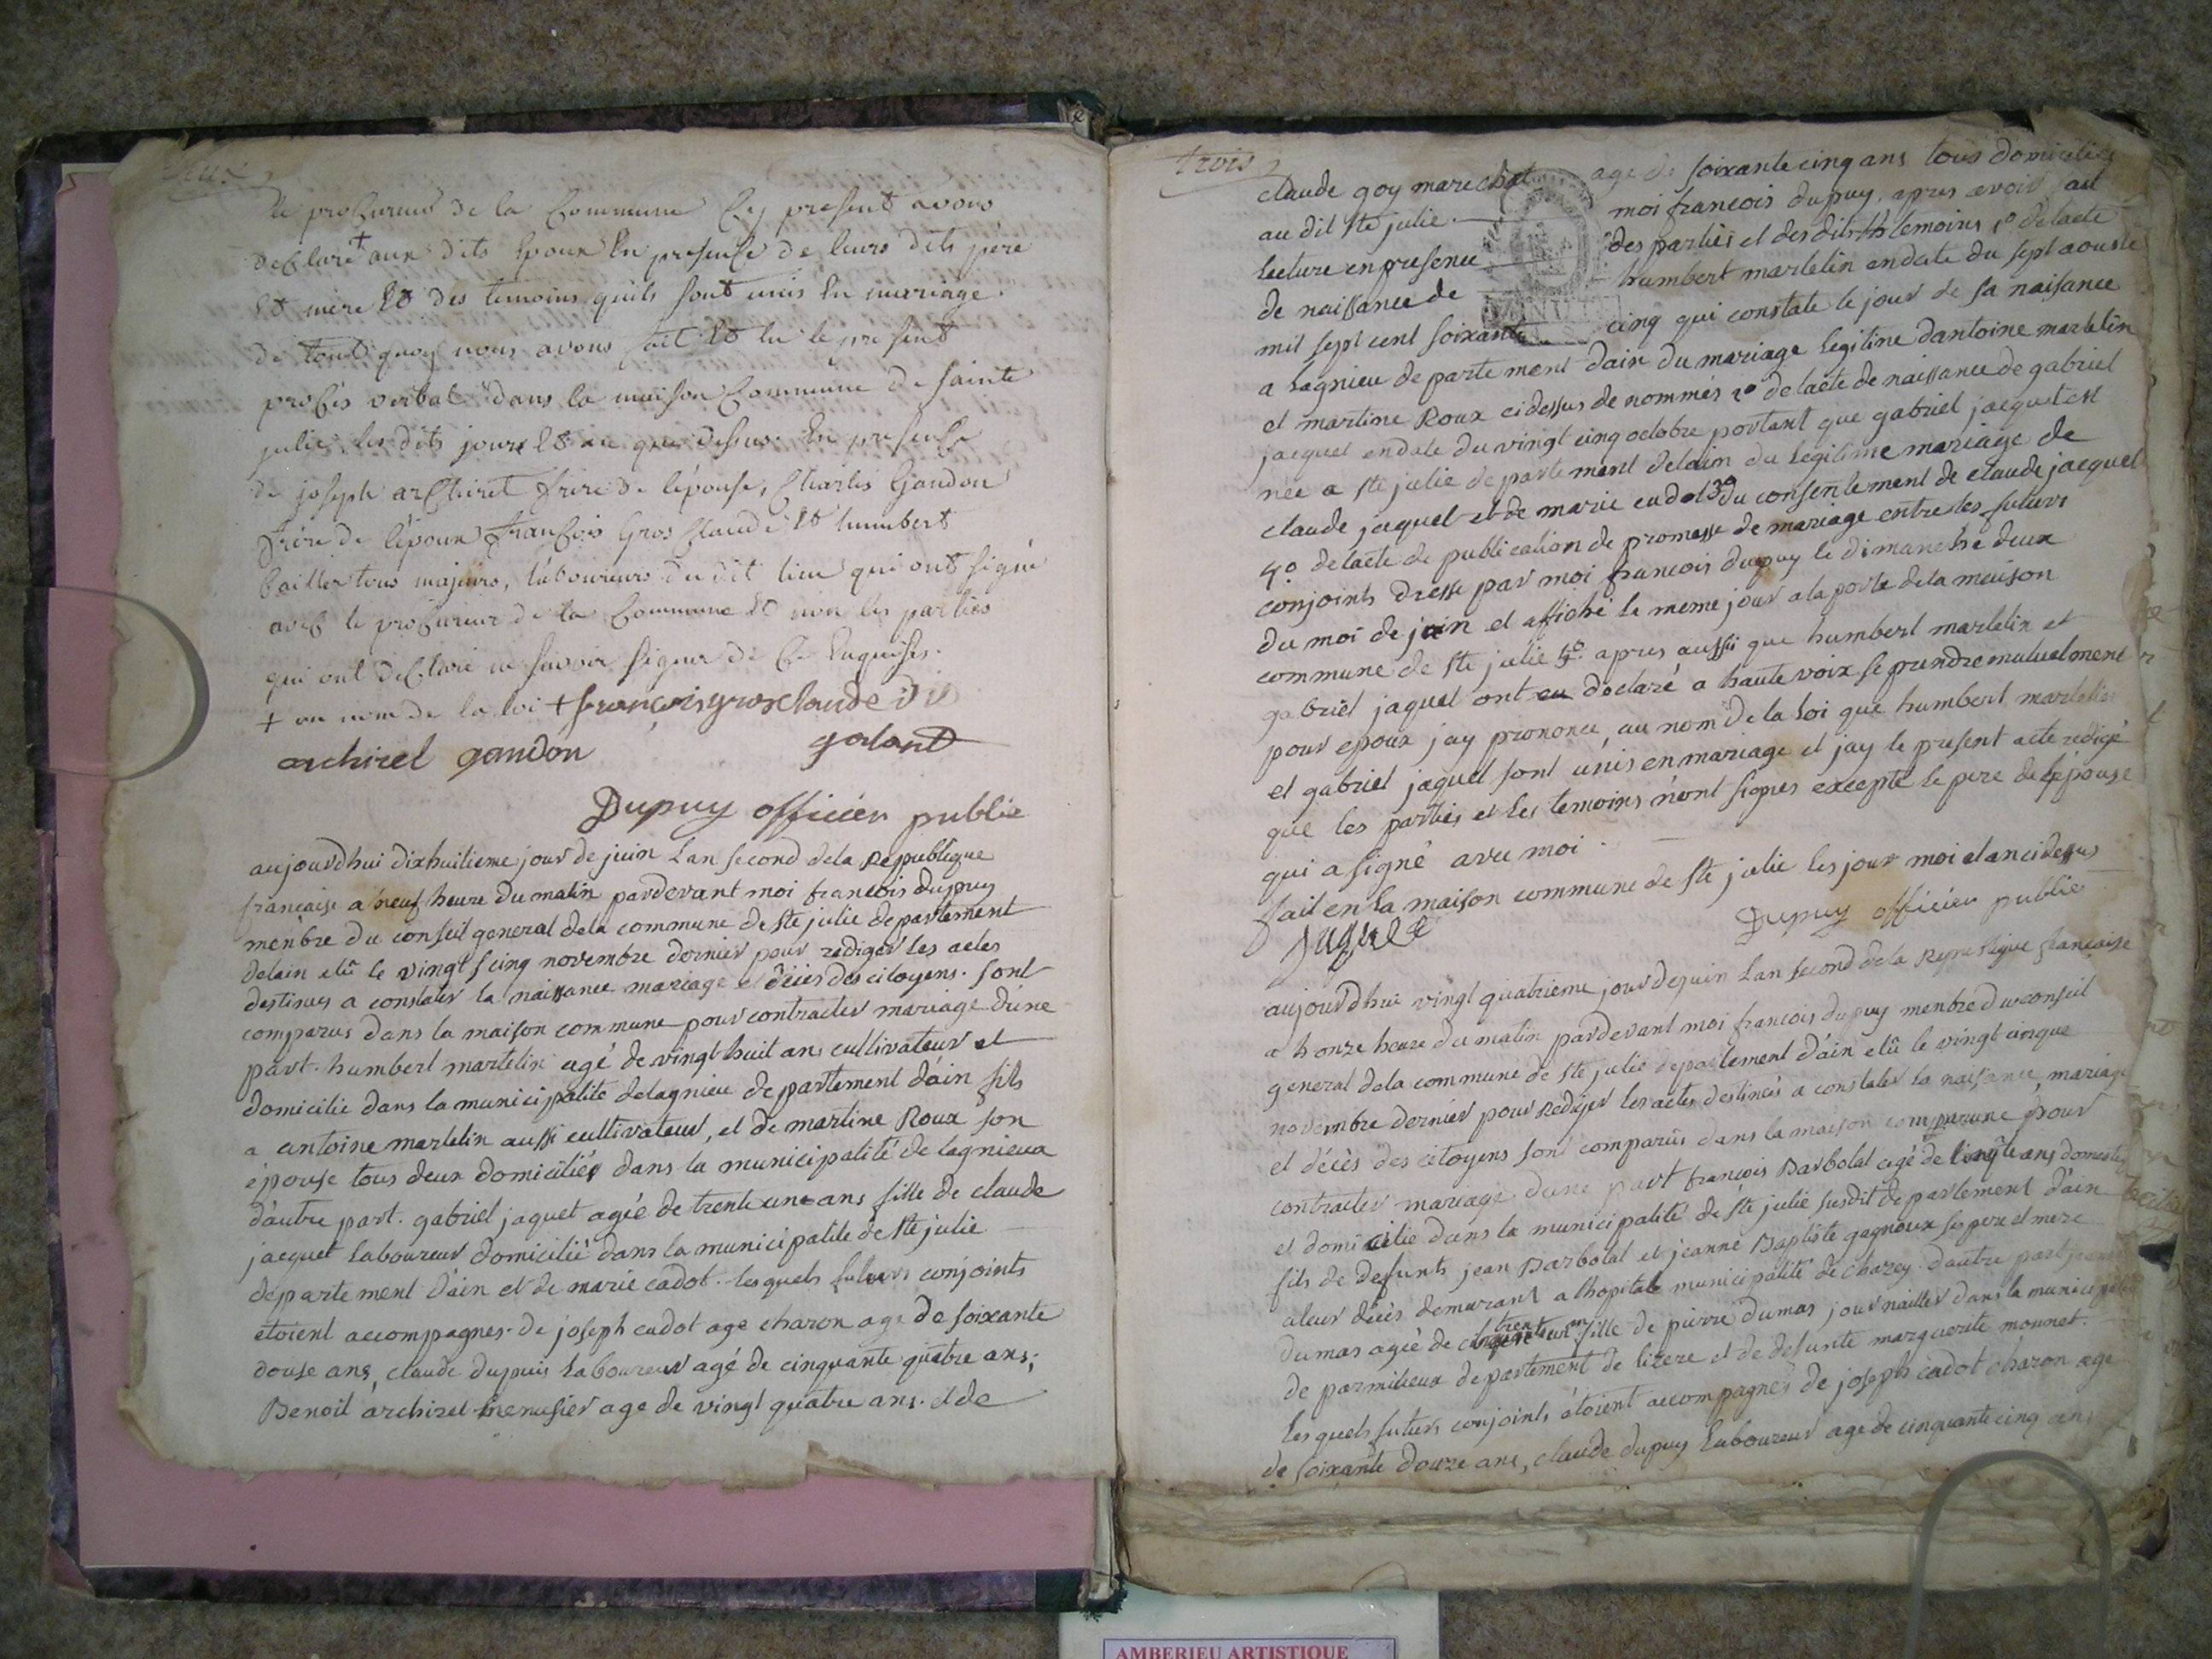 deux
le procureur de la Commune Cy present avons
declaré + aux dits Epoux En presence de leurs dits père
Et mère Et des temoins quils sont unis En mariage.
de tout quoy nous avons fait Et lu le present
procès verbal dans la maison Commune de sainte
julie les dits jours Et an que dessus. En presence
de joseph archirel frere de l'épouse, Charles Gandon
frere de l'époux françois Gros Claude Et humbert
baillet tous majeurs, laboureurs du dit lieu qui ont signé
avec le procureur de la Commune Et non les parties
qui ont declaré ne savoir signer de Ce Enquises.
+ au nom de la loi + françois gros claude dit
archirel gandon galand
Dupuy officier public
aujourdhui dixhuitieme jour de juin Lan second dela Republique
francaise a neuf heure du matin pardevant moi francois dupuy
menbre du conseil general dela commune de ste julie departement
delain elû le vingt scinq novembre dernier pour rediger les actes
destinés a constater la naissance mariage et décès des citoyens. sont
comparus dans la maison commune pour contracter mariage dune
part. humbert martelin agé de vingt huit ans cultivateur et
domicilie dans la municipalite delagnieu departement dain fils
a antoine martelin aussi cultivateur, et de martine Roux son
épouse tous deux domiciliés dans la municipalité de lagnieux
dautre part. gabriel jaquet agée de trente une ans fille de claude
jacquet Laboureur domicilié dans la municipalite de ste julie
departement dain et de marie cadot. lesquels futurs conjoints
étoient accompagnes. de joseph cadot age charon age de soixante
douse ans, claude dupuis Laboureur agé de cinquante quatre ans;
Benoit archirel menusier age de vingt quatre ans. et de
trois
claude goy marechal age de soixante cinq ans tous domiciliés
au dit ste julie. moi francois dupuy, apres avoir fait
lecture en presence des parties et des dits temoins 1º de lacte
de naissance de humbert martelin en date du sept aouste
mil sept cent soixante cinq qui constate le jour de sa naisance
a Lagnieu departement dain du mariage legitine dantoine martelin
et martine Roux cidessus denommés 2º de lacte de naissance de gabriel
jacquet en date du vingt cinq octobre portant que gabriel jacquet est
née a ste julie departement delain du legitime mariage de
claude jaquet et de marie cudot 3º du consentement de claude jacquet
4º delacte de publication de promesse de mariage entre les futurs
conjoints dresse par moi francois dupuy le dimanche deux
du moi de juin et affiché le meme jour a la porte dela maison
commune de ste julie 5º. apres aussi que humbert martelin et
gabriel jaquet ont declaré a haute voix se prendre mutuelment
pour epoux jay prononcé, au nom de la Loi que humbert martelin
et gabriel jaquet sont unis en mariage et jay le present acte redigé
que les parties et les temoins nont signes excepté le pere de lepouse
qui a signé avec moi.
fait en la maison commune de ste julie les jour moi et an cidessus
Dupuy officier public
aujourdhui vingt quatrieme jour dejuin Lan second dela Republique francaise
a honze heure du matin pardevant moi francois dupuy menbre du conseil
general dela commune de ste julie departement dain elû le vingt cinque
novembre dernier pour Rediger les actes destinés a constater la naisance, mariage
et décès des citoyens sont comparûs dans la maison commune pour
contracter mariage dune part francois Barbolat agé de ans domestique
et domicilié dans la municipalité de ste julie susdit departement dain
fils de defunts jean Barbolat et jeanne Baptiste gagneux ses pere et mere
aleur décès demurant a lhopitale municipalité de chazey. dautre part
dumas agée de trente un ans fille de pierre dumas journailler dans la municipalité
de parmilieux departement de lizere et de defunte marguerite mounet.
Lesquels futurs conjoints étoient accompagnés de joseph cadot charon age
de soixante douze ans, claude dupuy Laboureur age de cinquante cinq ans
AMBERIEU ARTISTIQUE